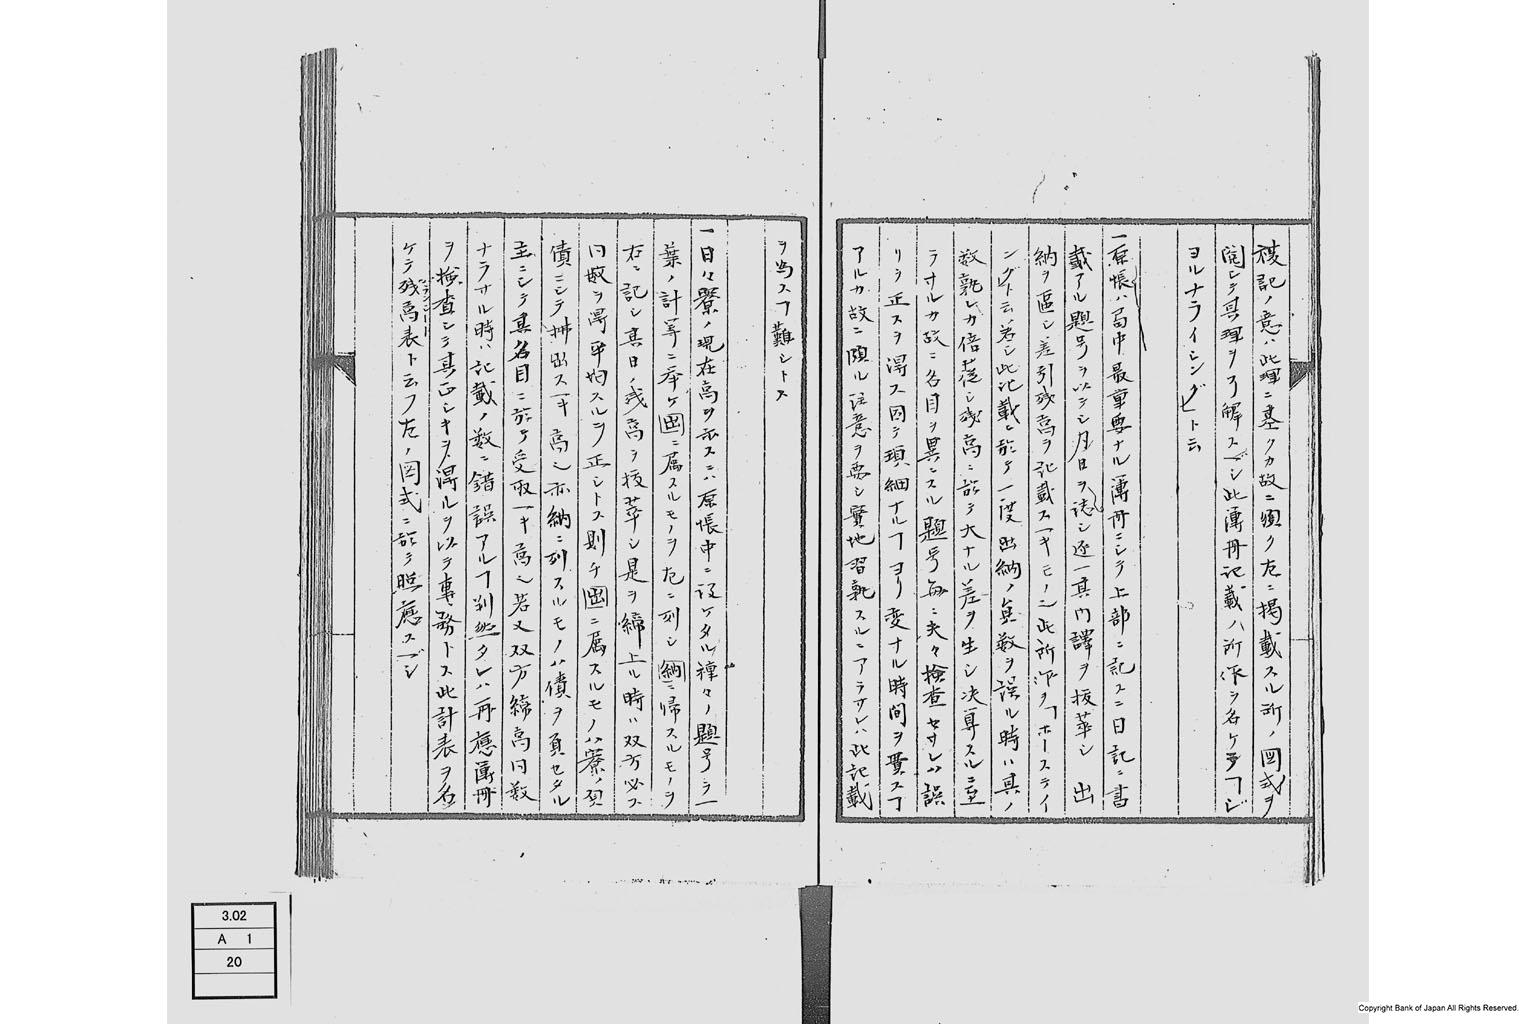 複記ノ意ハ此理ニ基クカ故ニ須ク左ニ掲載スル所ノ図式ヲ
閲シテ其理ヲ了解スベシ此簿冊記載ノ所作ヲ名ケテヲフジ
ヨルナライシングト云
一原帳ハ局中最重要ナル簿冊ニシテ上部ニ記スニ日記ニ書
載アル題号ヲ以テシ月日ヲ誌シ逐一其内譯ヲ抜萃シ出
納ヲ區シ差引残高ヲ記載スヘキモノ也此所作ヲ「ホースティ
ングト云若シ此記載ニ於テ一度出納ノ眞数ヲ誤ル時ハ其ノ
数孰レカ倍蓰シ残高ニ於テ大ナル差ヲ生シ决算スルニ至
ラサルカ故ニ各目ヲ異ニスル題号毎ニ夫々検査セサレハ誤
リヲ正スヲ得ス因テ瑣細ナルヿヨリ変ナル時間ヲ費スヿ
アルカ故ニ頗ル注意ヲ要シ實地習熟スルニアラサレハ此記載
ヲ為スヿ難シトス
一日々寮ノ現在高ヲ示スニハ原帳中ニ設ケタル種々ノ題号ヲ一
葉ノ計算ニ挙ケ出ニ属スルモノヲ左ニ列シ納ニ帰スルモノヲ
右ニ記シ其日ノ残高ヲ抜萃シ是ヲ締上ル時ハ双方必ス
同数ヲ得平均スルヲ正シトス則チ出ニ属スルモノハ寮ノ貸
債ニシテ拂出スヘキ高也亦納ニ列スルモノハ債ヲ負セタル
主ニシテ其名目ニ於テ受取ヘキ高也若又双方締高同数
ナラサル時ハ記載ノ数ニ錯誤アルヿ判然タレハ再應簿冊
ヲ検査シテ其正シキヲ得ルヲ以テ事務トス此計表ヲ名
ケテ残高表ト云フ左ノ図式ニ於テ照應スベシ
3.02
A 1
20
Copyright Bank of Japan All Rights Reserved.